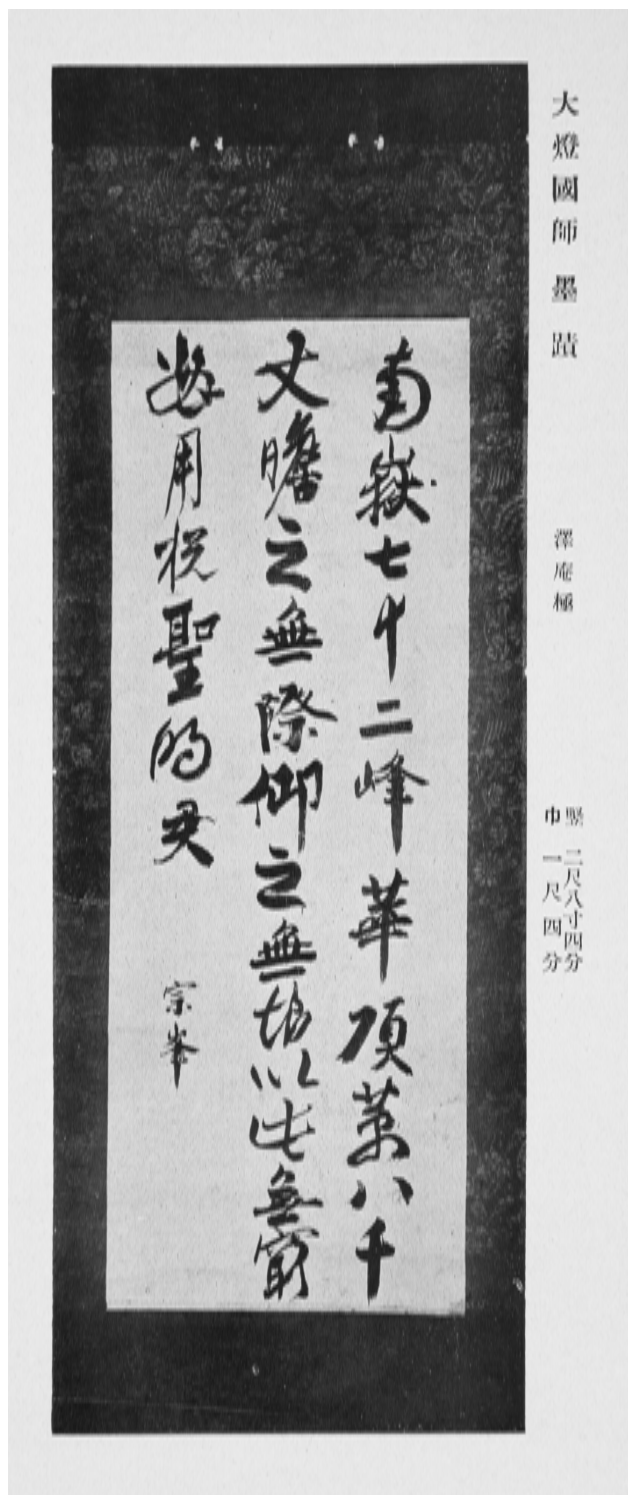 大燈國師墨蹟
澤庵極
竪 二尺八寸四分
巾 一尺四分
南嶽七十二峰華頂萬八千
丈瞻之無際仰之無垠以此無窮
數用祝聖明君
宗峯